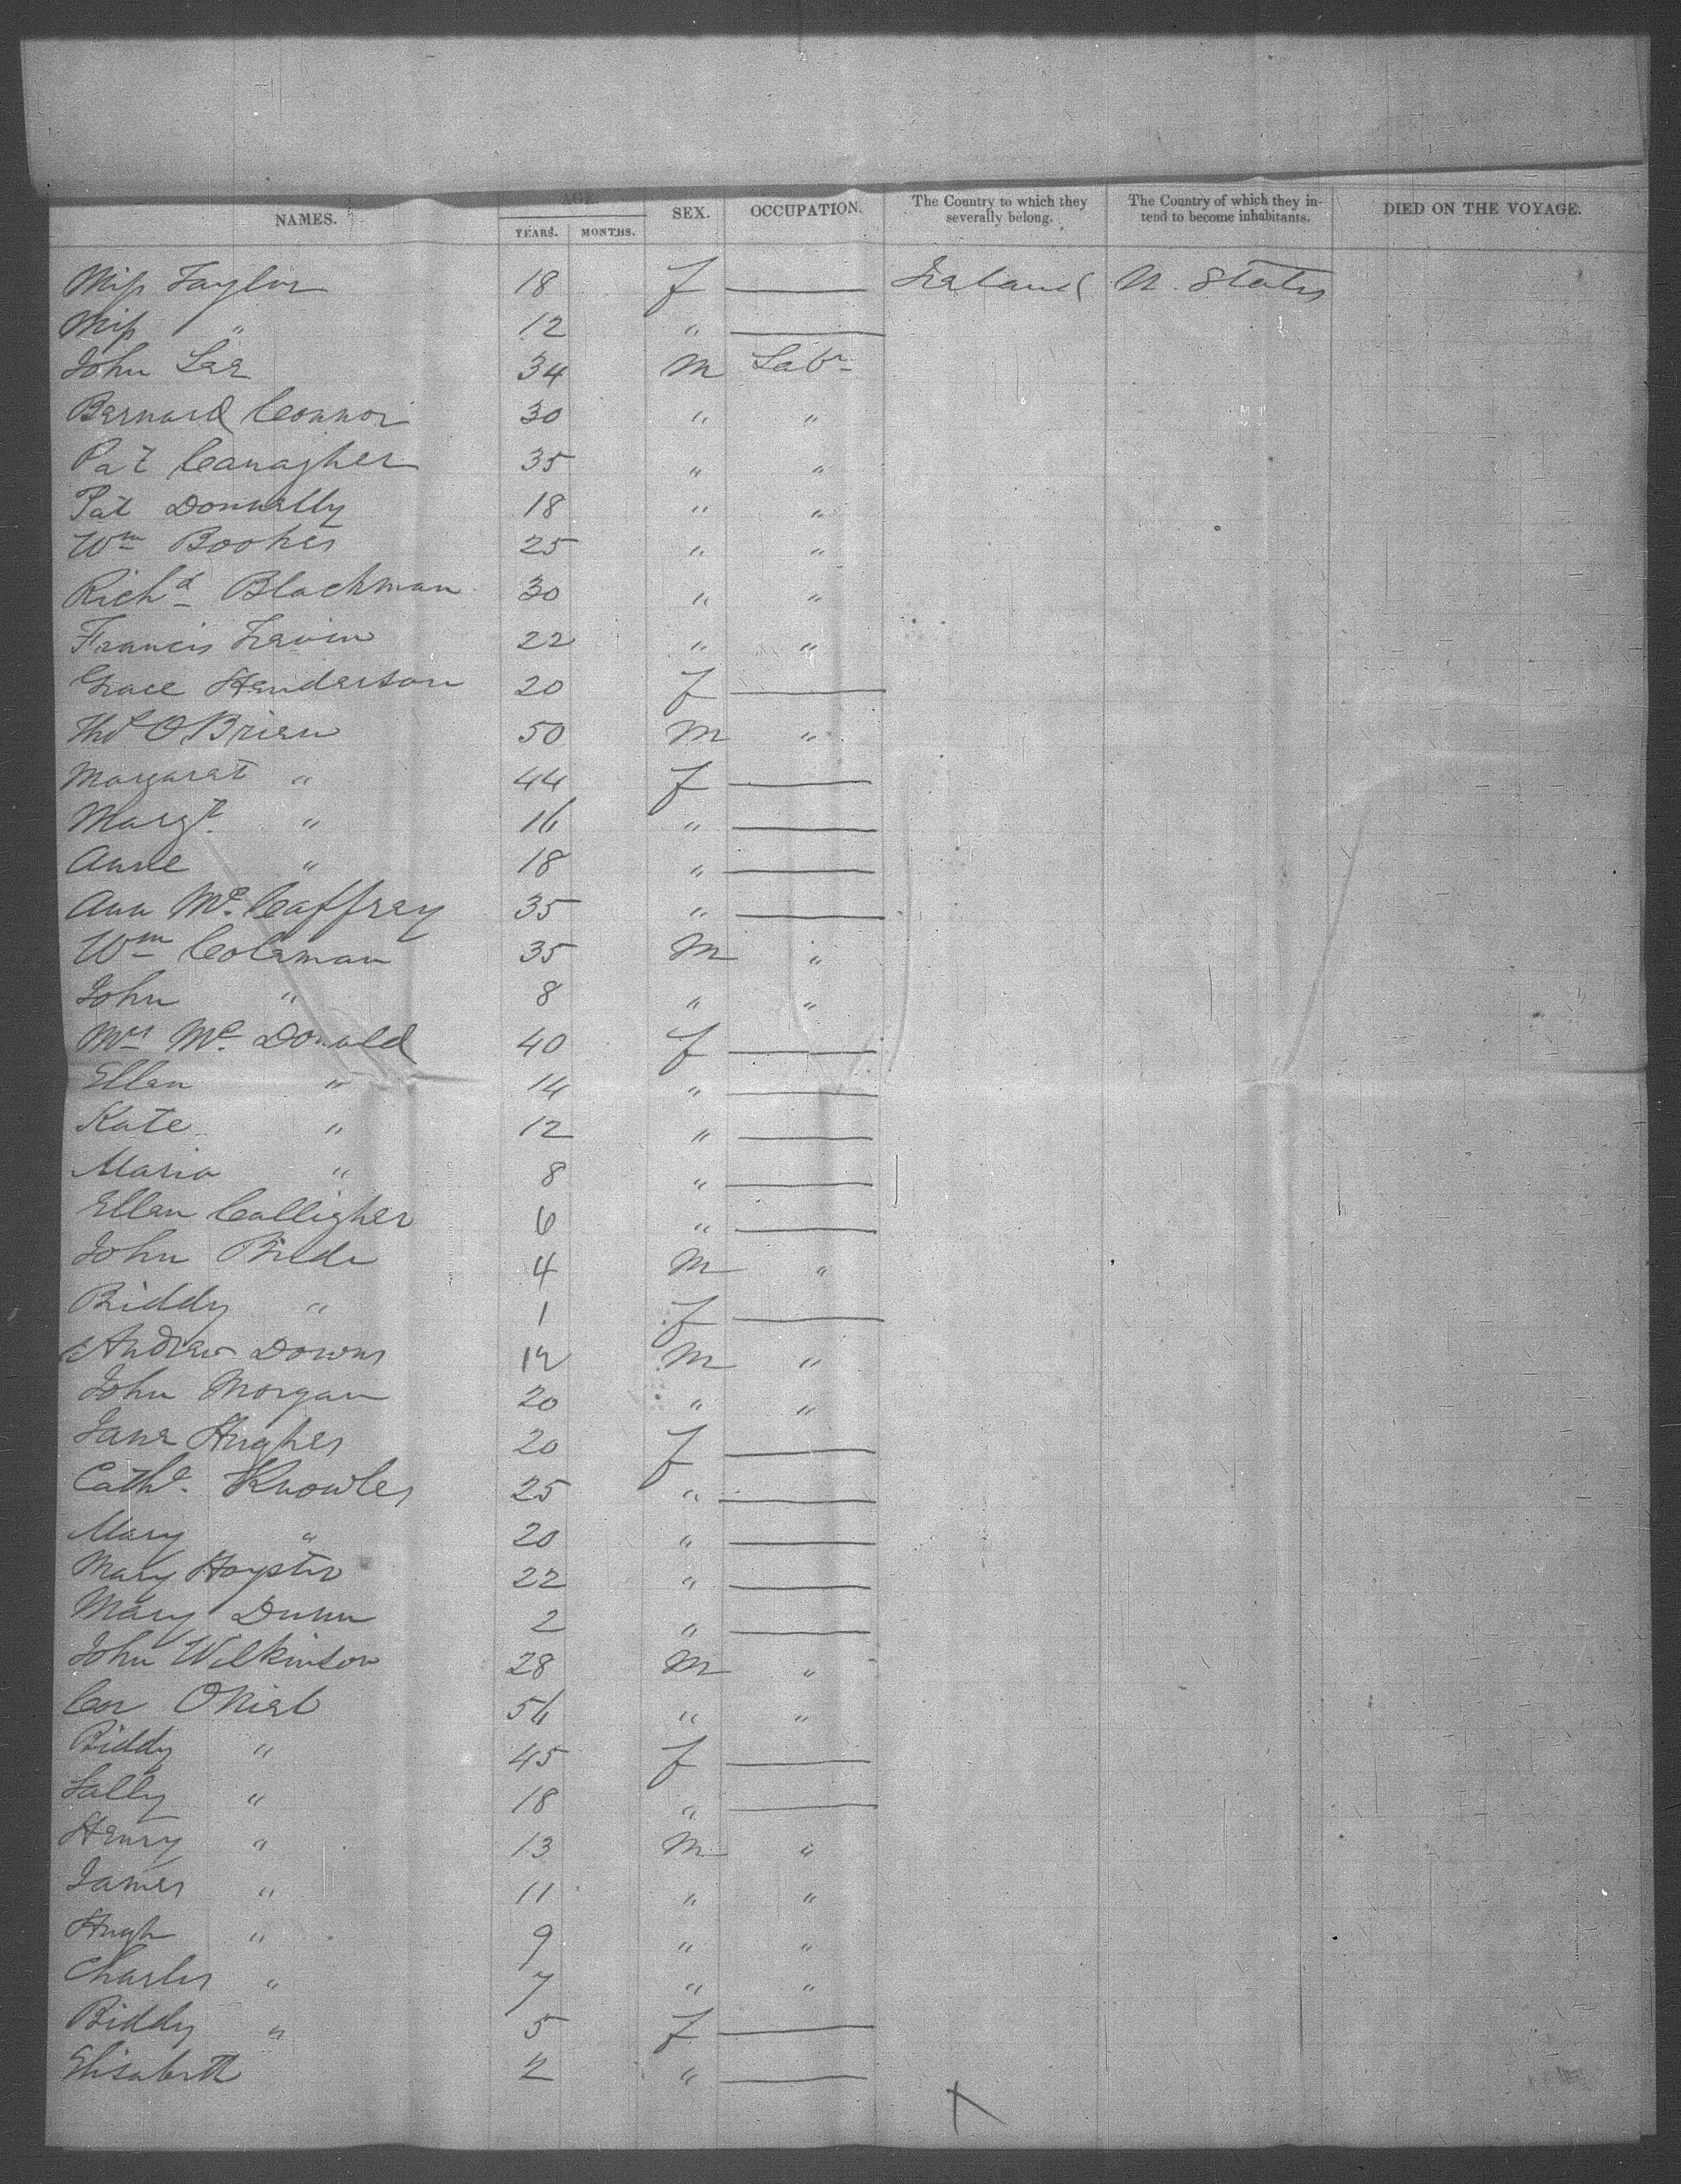 NAMES. AGE. SEX. OCCUPATION. The Country to which they severally belong. The Country of which they intend to become inhabitants. DIED ON THE VOYAGE.
YEARS. MONTHS.
Miss Taylor 18 f — Ireland U. States
Miss " 12 " —
John Lee 34 M Labr
Bernard Connor 30 " "
Pat Canagher 35 " "
Pat Donnelly 18 " "
Wm Booker 25 " "
Richd Blackman 30 " "
Francis 22 " "
Grace Henderson 20 f —
Thos OBrien 50 M "
Margaret " 44 f —
Margt " 16 " —
Anne " 18 " —
Ann Mc Caffrey 35 " —
Wm Coleman 35 M "
John " 8 " "
Mrs Mc Donald 40 f —
Ellen " 14 " —
Kate " 12 " —
Maria " 8 " —
Ellen Calligher 6 " —
John 4 M "
Biddy " 1 f —
Andrew Downs 19 M "
John Morgan 20 " "
Jane Hughes 20 f —
Cathe Knowles 25 " —
Mary " 20 " —
Mary 22 " —
Mary Dunn 2 " —
John Wilkinson 28 M "
Con ONiel 56 " "
Biddy " 45 f —
Sally " 18 " —
Henry " 13 M "
James " 11 " "
Hugh " 9 " "
Charles " 7 " "
Biddy " 5 f —
Elisabeth 2 " —